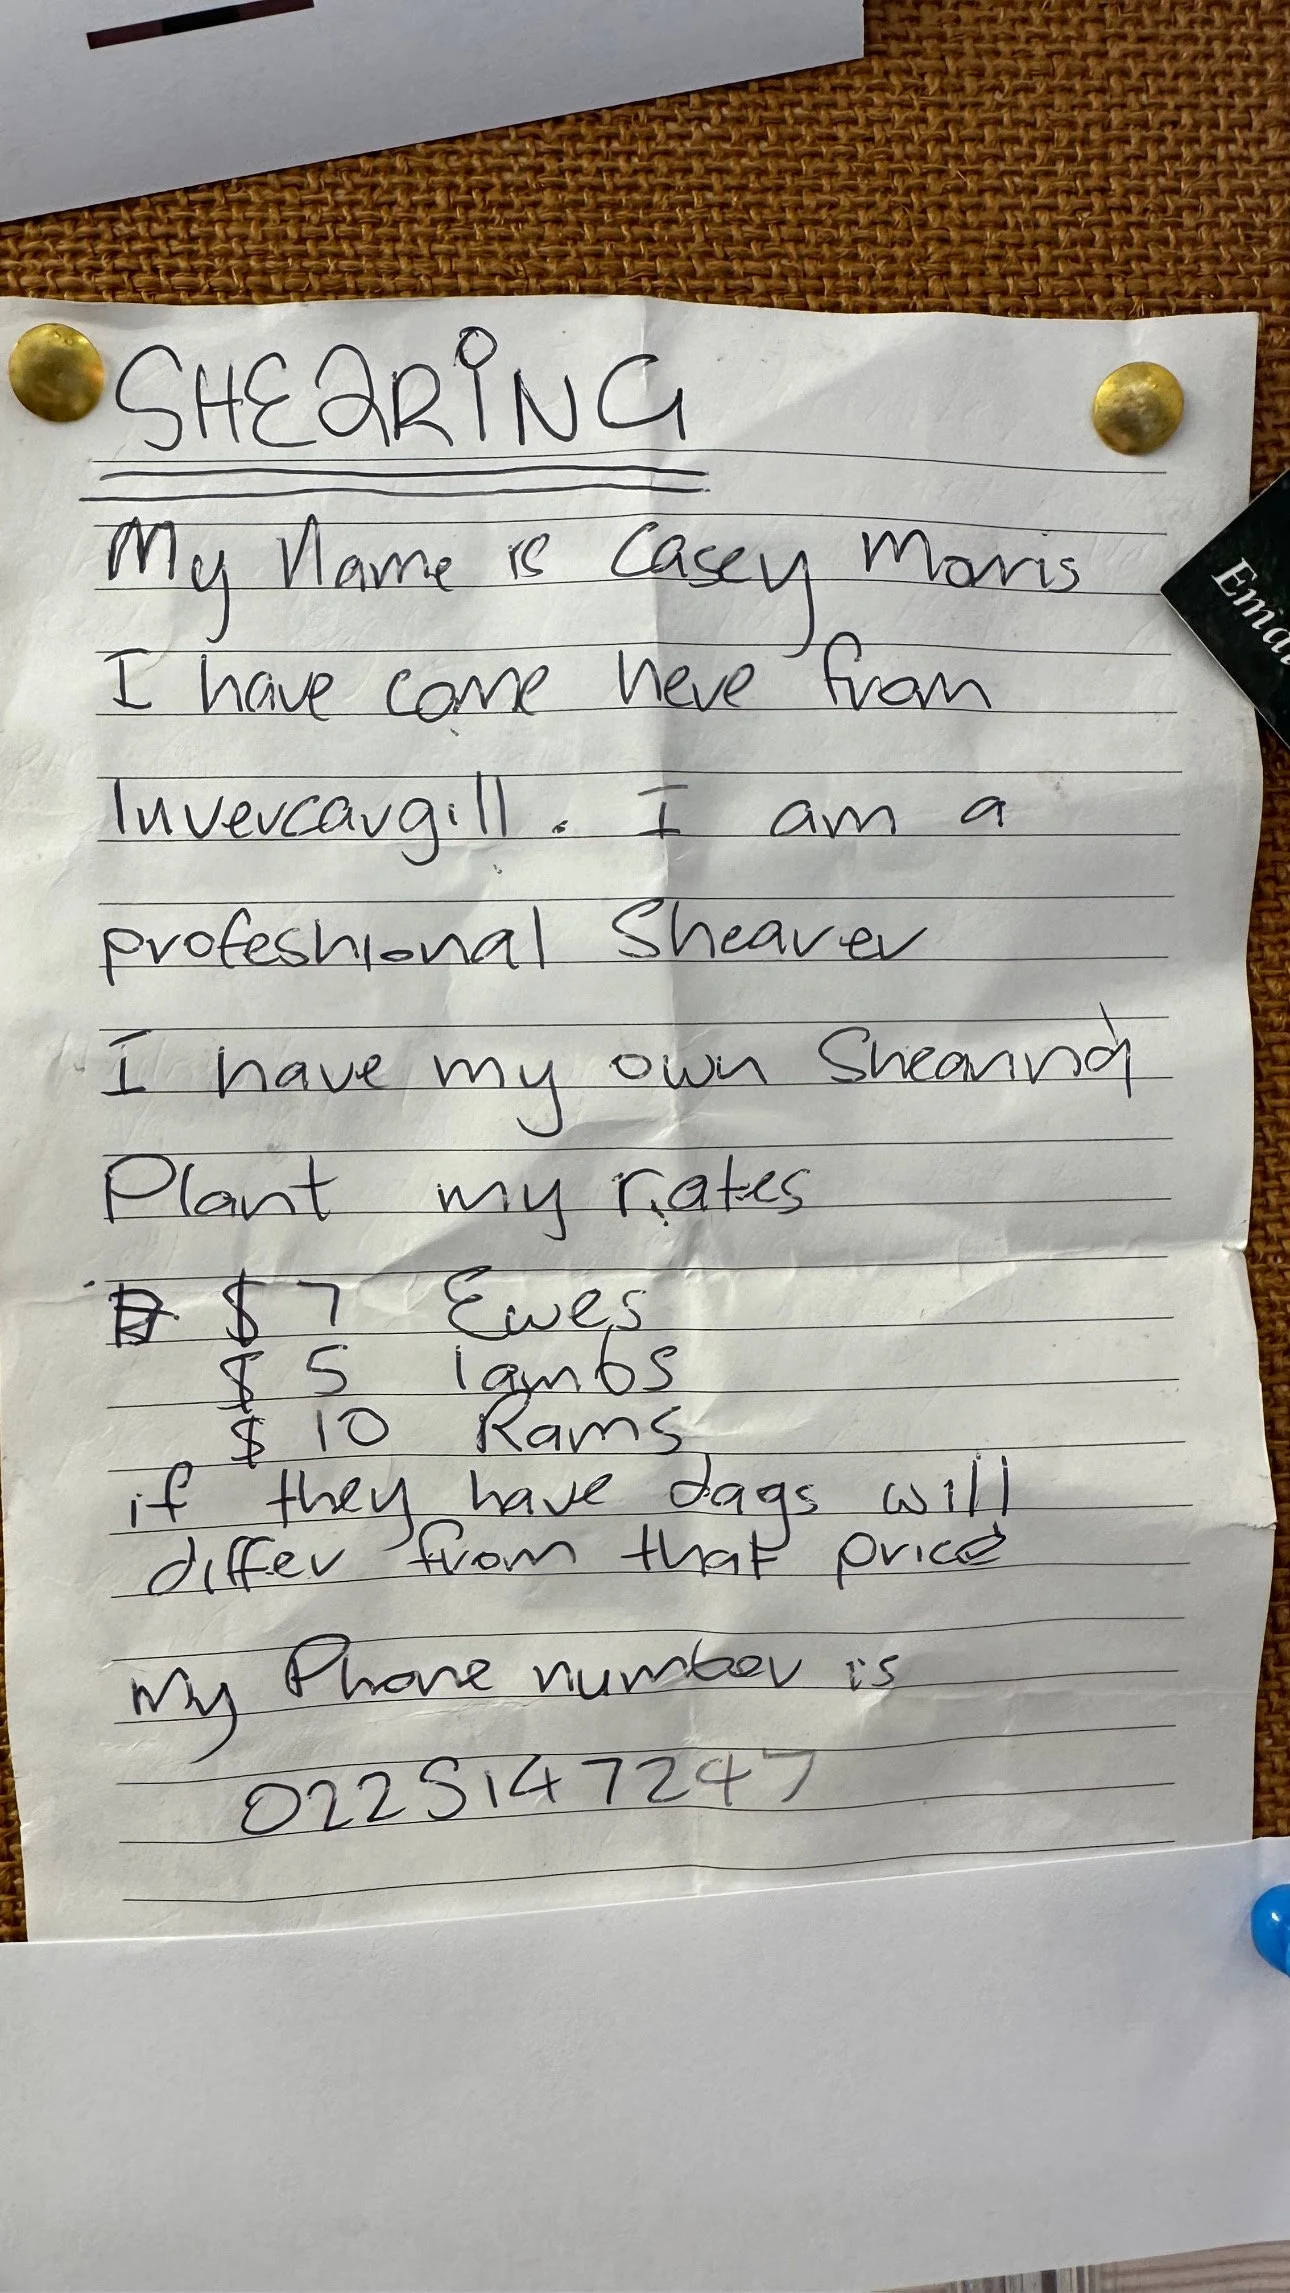 SHEARING
My Name is Casey Morris
I have come here from
Invercargill. I am a
profeshional Shearer
I have my own Shearing
Plant my rates
$7 Ewes
$5 lambs
$10 Rams
if they have dags will
differ from that price
My Phone number is
0225147247
Email